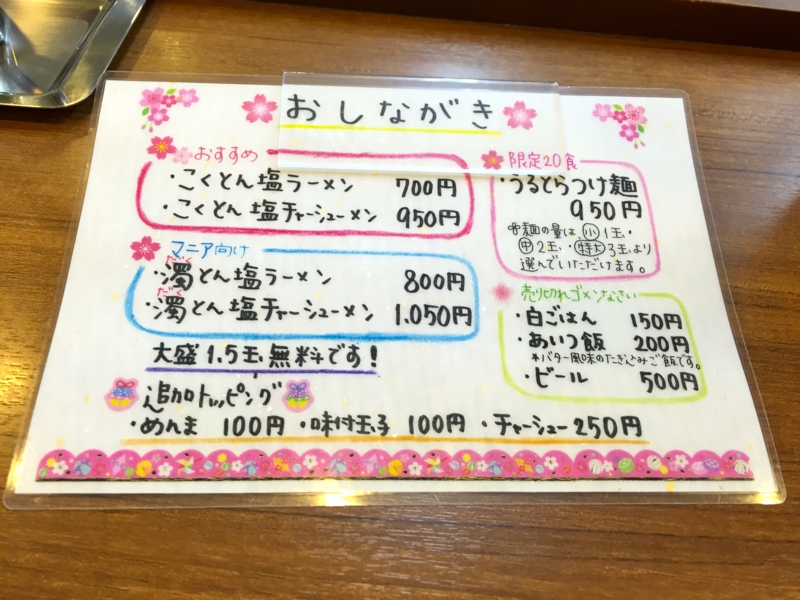 おしながき
おすすめ
・こくとん塩ラーメン 700円
・こくとん塩チャーシューメン 950円
マニア向け
だく
・濁とん塩ラーメン 800円
だく
・濁とん塩チャーシューメン 1.050円
大盛1.5玉無料です!
限定20食
・うるとらつけ麺
950円
※麺の量は小1玉・
中2玉・特大3玉より
選んでいただけます。
売り切れゴメンなさい
・白ごはん 150円
・あいつ飯 200円
*バター風味のたきこみご飯です。
・ビール 500円
追加トッピング
・めんま 100円 ・味付玉子 100円 ・チャーシュー250円